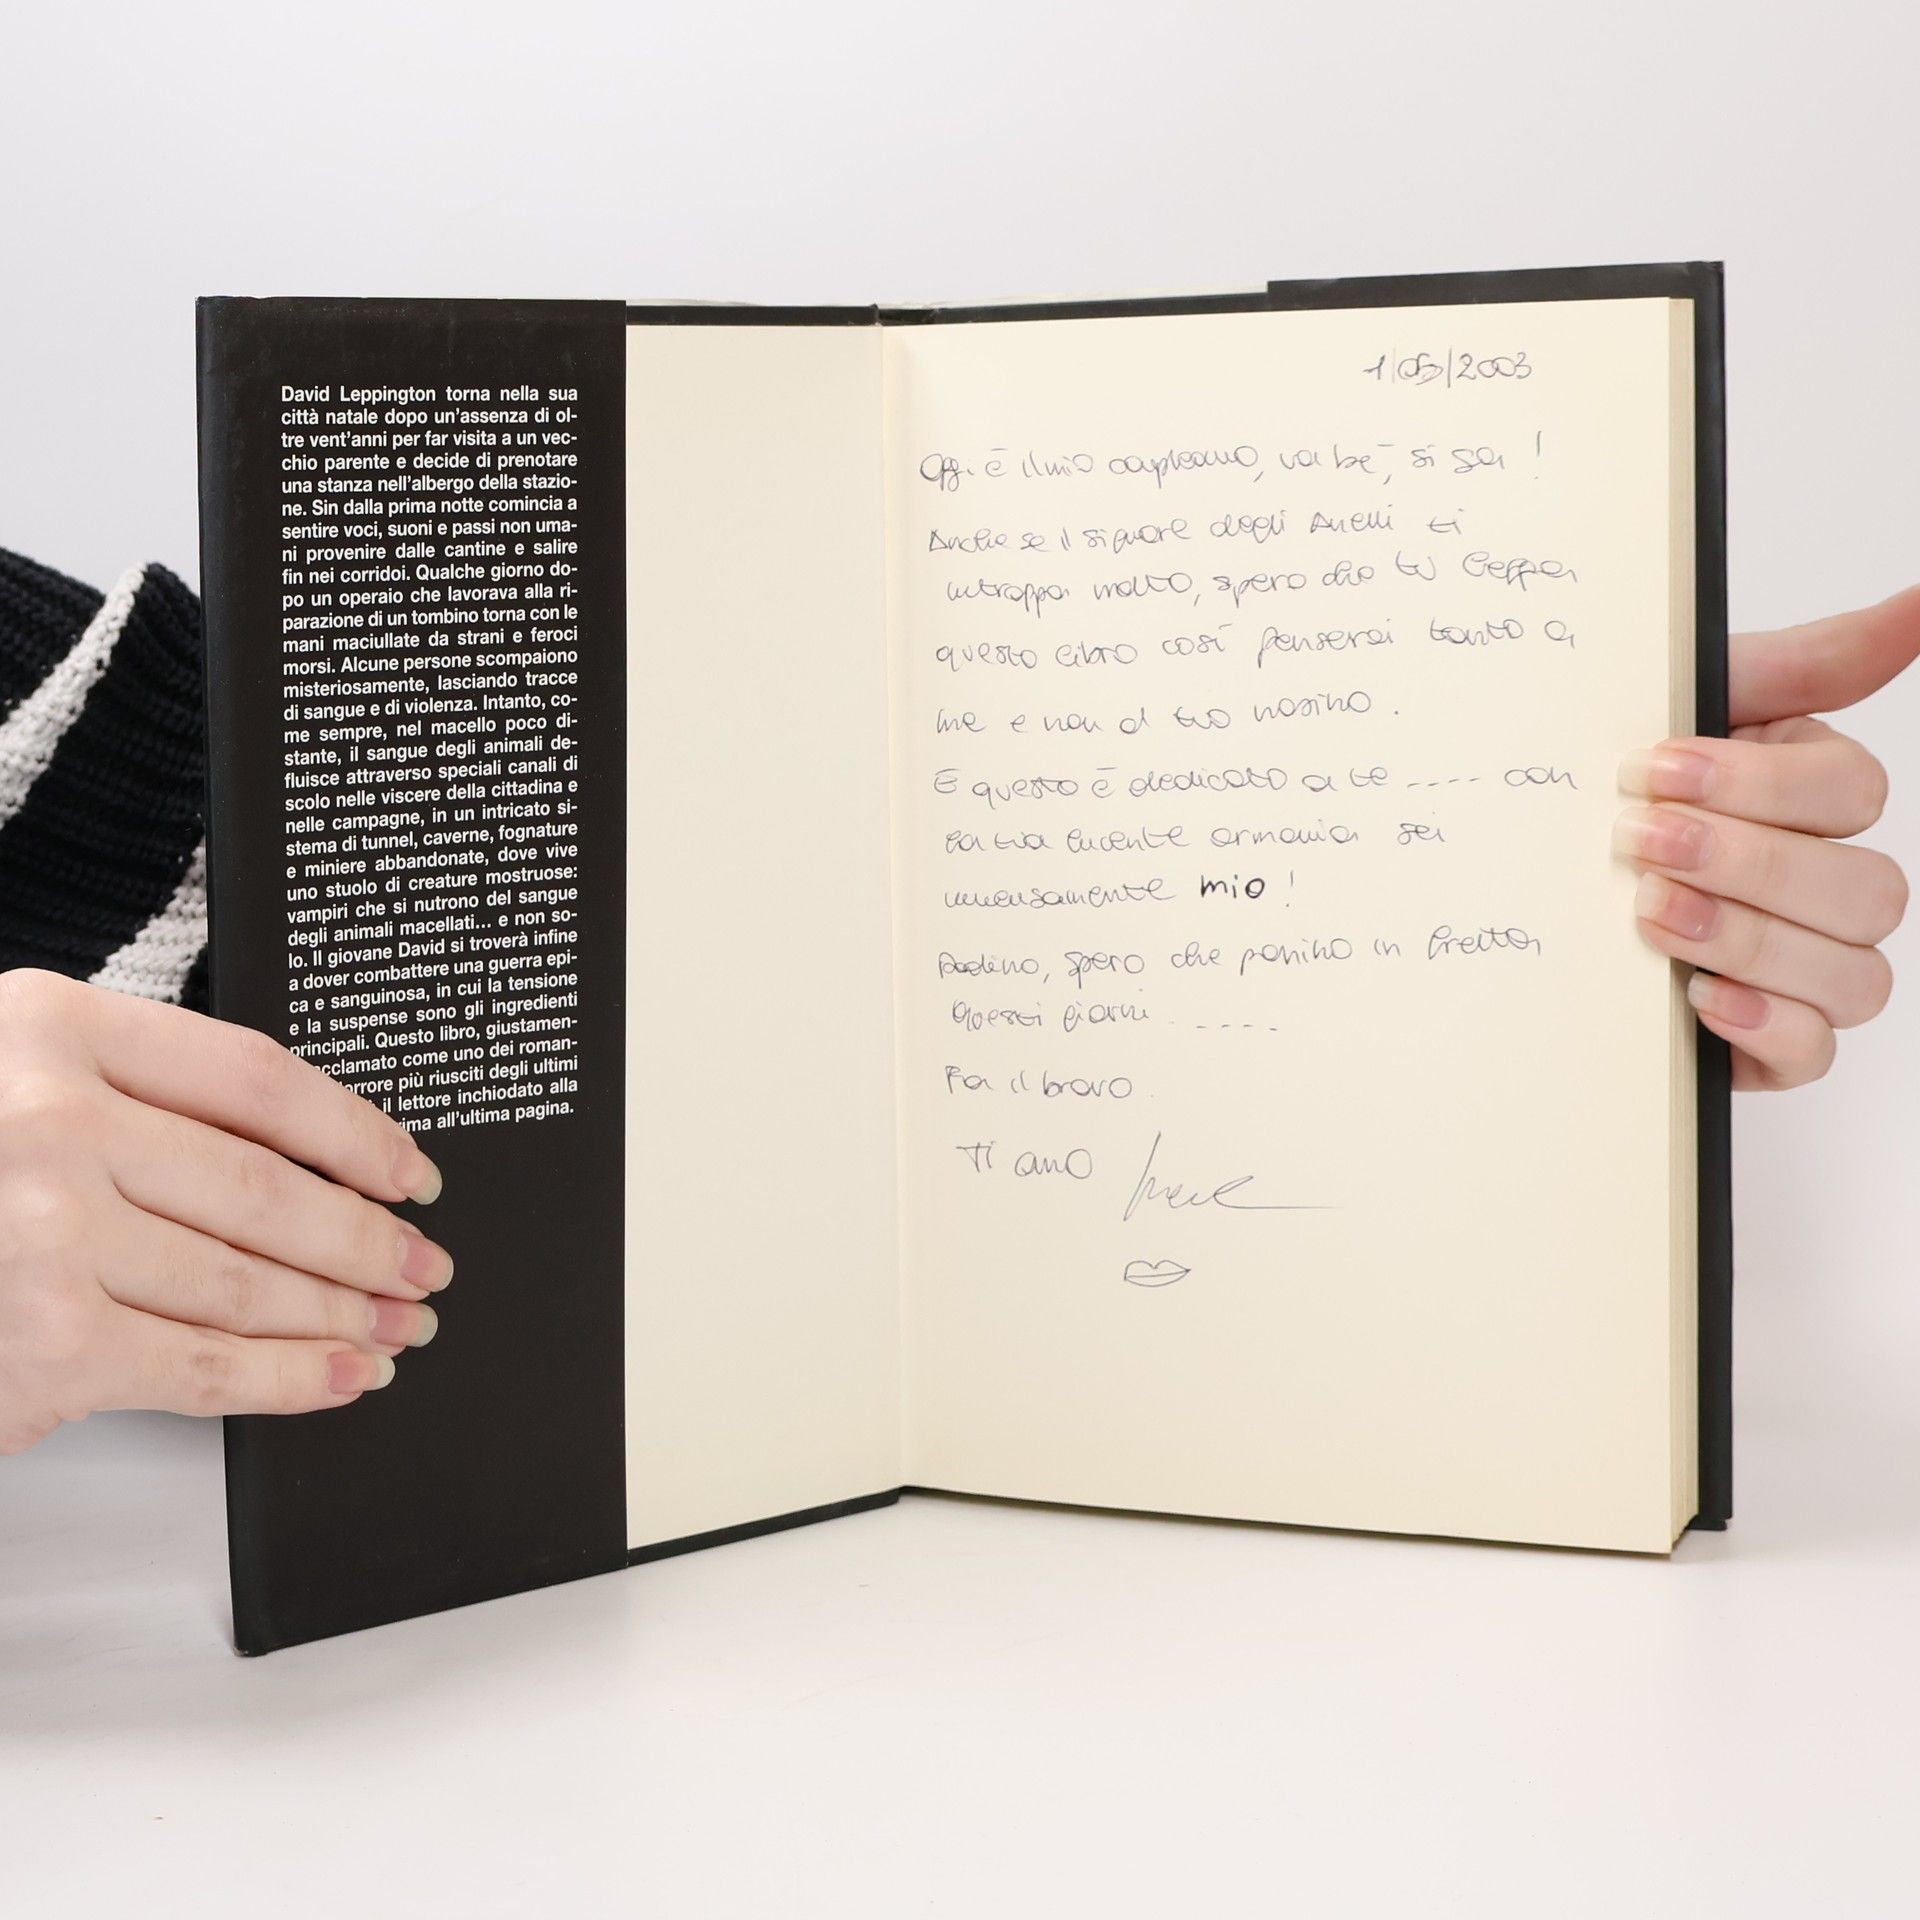 David Leppington torna nella sua
città natale dopo un'assenza di ol-
tre vent'anni per far visita a un vec-
chio parente e decide di prenotare
una stanza nell'albergo della stazio-
ne. Sin dalla prima notte comincia a
sentire voci, suoni e passi non uma-
ni provenire dalle cantine e salire
fin nei corridoi. Qualche giorno do-
po un operaio che lavorava alla ri-
parazione di un tombino torna con le
mani maciullate da strani e feroci
morsi. Alcune persone scompaiono
misteriosamente, lasciando tracce
di sangue e di violenza. Intanto, co-
me sempre, nel macello poco di-
stante, il sangue degli animali de-
fluisce attraverso speciali canali di
scolo nelle viscere della cittadina e
nelle campagne, in un intricato si-
stema di tunnel, caverne, fognature
e miniere abbandonate, dove vive
uno stuolo di creature mostruose:
vampiri che si nutrono del sangue
degli animali macellati... e non so-
lo. Il giovane David si troverà infine
a dover combattere una guerra epi-
ca e sanguinosa, in cui la tensione
e la suspense sono gli ingredienti
principali. Questo libro, giustamen-
acclamato come uno dei roman-
orrore più riusciti degli ultimi
il lettore inchiodato alla
ima all'ultima pagina.
1/05/2003
Oggi è il mio compleanno, va bè, si sa!
Anche se il signore degli Anelli ti
intrappa molto, spero che tu legga
questo libro così penserai tanto a
me e non al tuo nasino.
E questo è dedicato a te ---- con
la tua lucente armonia sei
immensamente mio!
spero che panino in fretta
questi giorni.----
Fa il bravo.
Ti amo